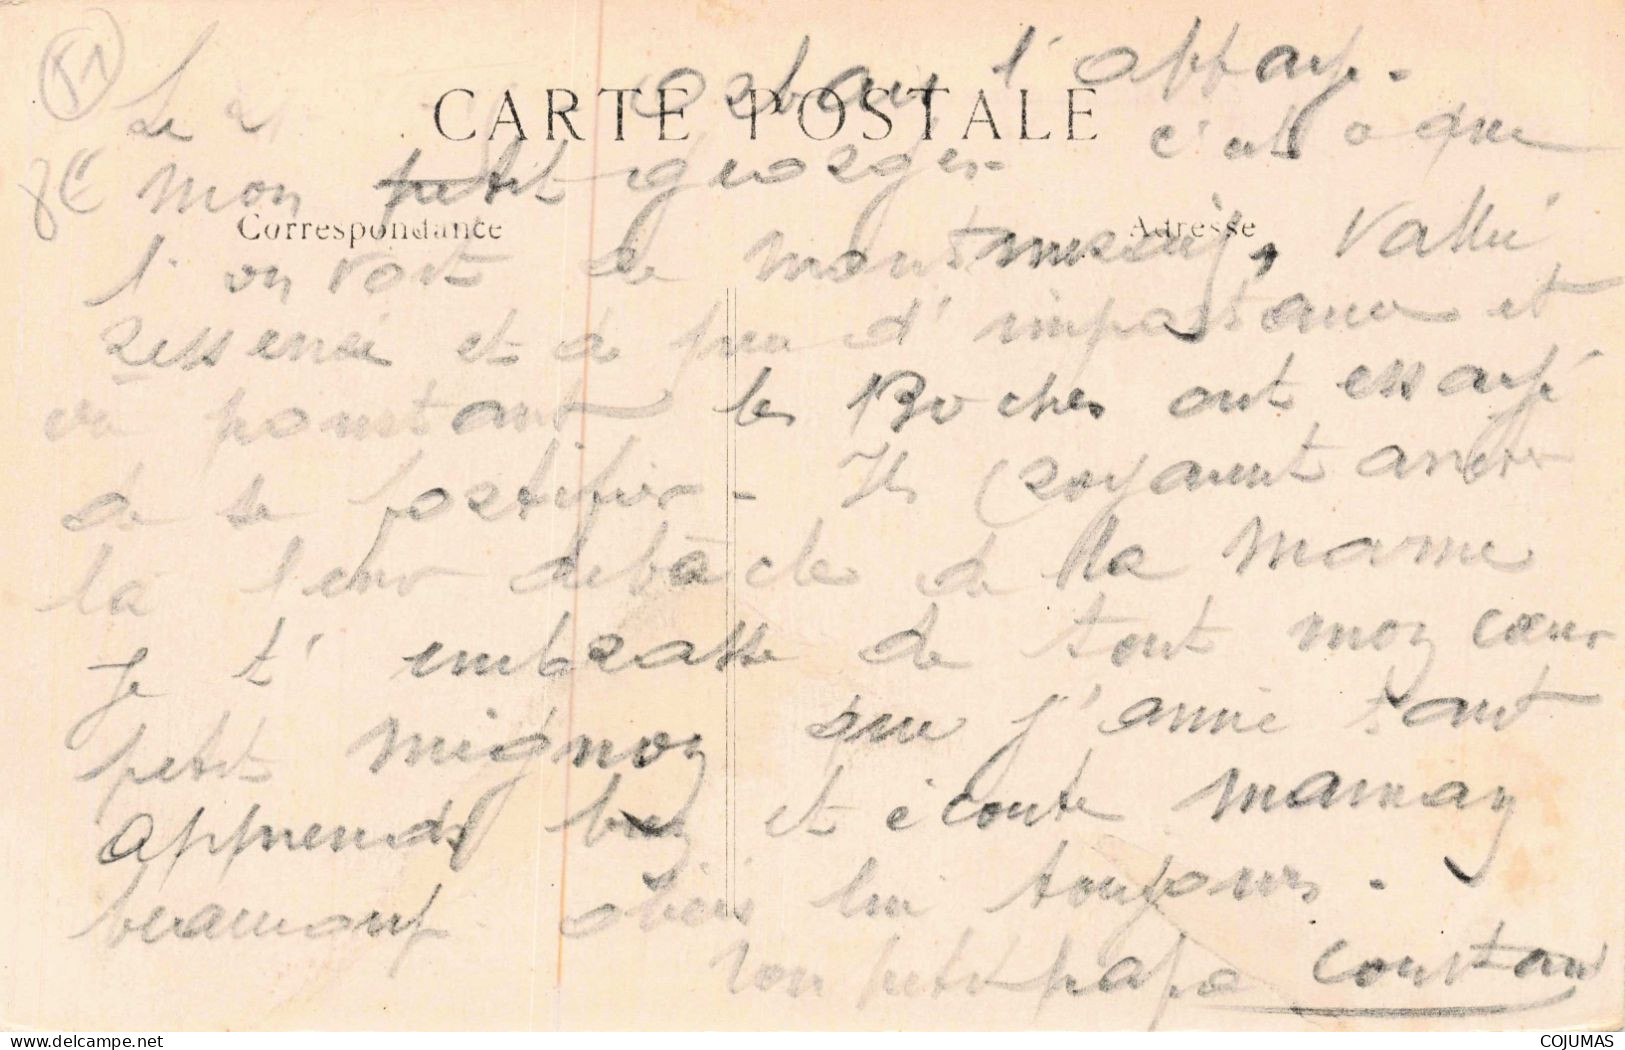 51
8€
CARTE POSTALE
Le 21 l'appay.
Mon petit georges. c'est a que
Correspondance
Adresse
l'on voit de montmirail, Vallée
et à peu d'importance et
pourtant les Boches ont essayé
de se fortifier - Ils croyaient arrêter
là leur debâcle de la Marne
Je t'embrasse de tout mon cœur
petit mignon que j'aime tant
apprends bien et écoute maman
beaucoup obeis lui toujours.
Ton petit papa Constant
COJUMAS